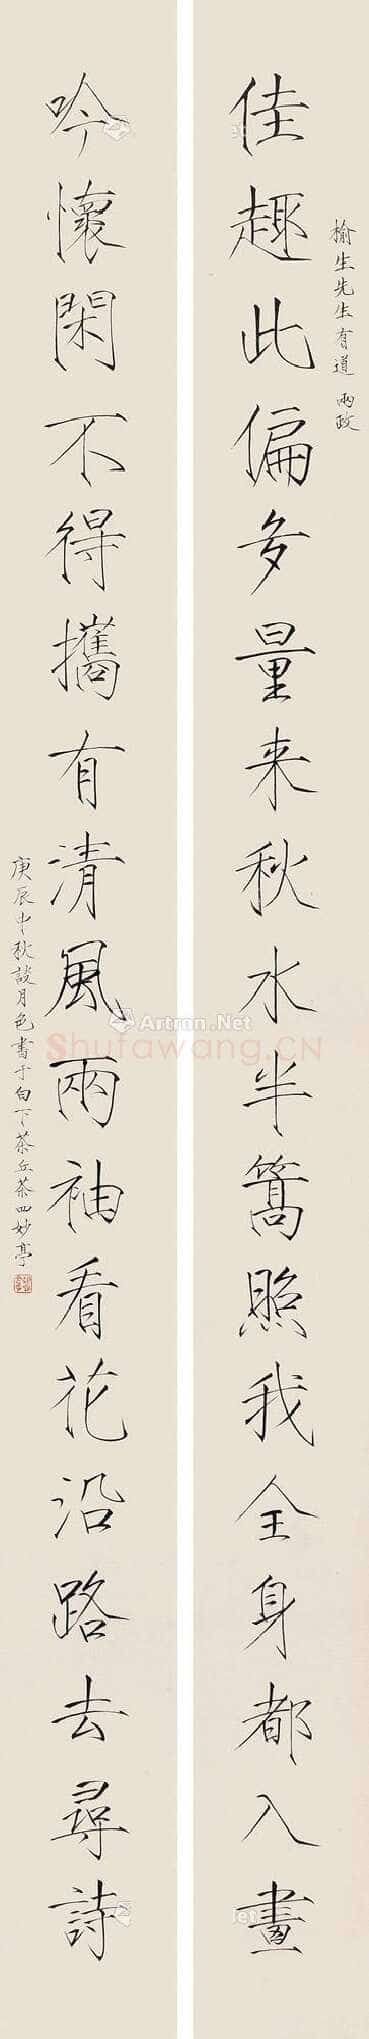 榆生先生有道 两政
佳趣此偏多量来秋水半篙照我全身都入畫
吟懷閑不得攜有清風兩袖看花沿路去尋詩
庚辰中秋談月色書于白下茶丘茶四妙亭
Artron.Net
Shufawang.CN